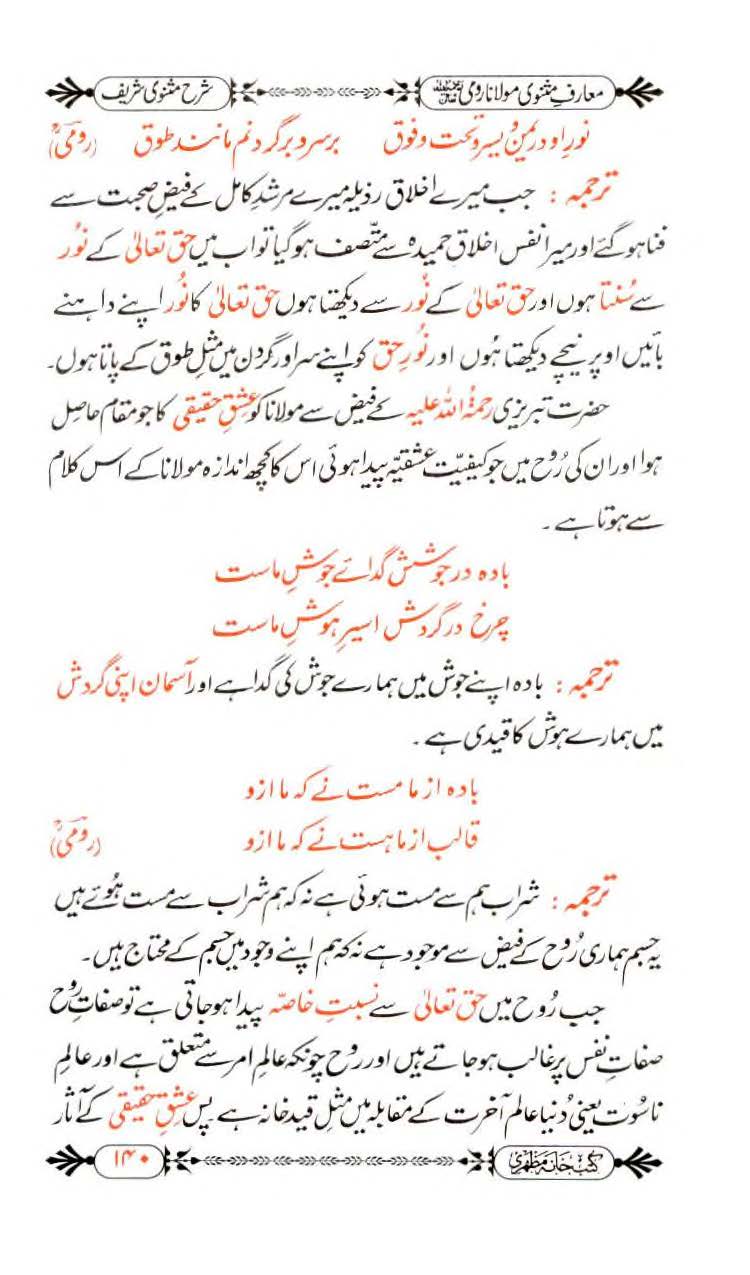 معارفِ مثنوی مولانا رومی رحمہ اللہ تعالیٰ شرح مثنوی شریف
نورِ او در یمن و یسر و تحت و فوق بر سر و بر گردنم مانند طوق (رومیؒ)
ترجمہ : جب میرے اخلاق رذیلہ میرے مرشدِ کامل کے فیضِ صحبت سے
فنا ہوگئے اور میرا نفس اخلاقِ حمیدہ سے متّصف ہوگیا تو اب میں حق تعالیٰ کے نُور
سے سُنتا ہوں اور حق تعالیٰ کے نُور سے دیکھتا ہوں حق تعالیٰ کا نُور اپنے داہنے
بائیں اوپر نیچے دیکھتا ہُوں اور نُورِ حق کو اپنے سر اور گردن میں مثلِ طوق کے پاتا ہوں۔
حضرت تبریزی رحمۃُ اللہ علیہ کے فیض سے مولانا کو عشقِ حقیقی کا جو مقام حاصل
ہوا اور ان کی رُوح میں جو کیفیّت عشقیہ پیدا ہوئی اس کا کچھ اندازہ مولانا کے اس کلام
سے ہوتا ہے ۔
بادہ در جوشش گدائے جوشِ ماست
چرخ در گردش اسیرِ ہوشِ ماست
ترجمہ : بادہ اپنے جوش میں ہمارے جوش کی گدا ہے اور آسمان اپنی گردش
میں ہمارے ہوش کا قیدی ہے ۔
بادہ از ما مست نے کہ ما ازو
قالب از ما ہست نے کہ ما ازو (رومیؒ)
ترجمہ : شراب ہم سے مست ہوئی ہے نہ کہ ہم شراب سے مست ہُوئے ہیں
یہ جسم ہماری رُوح کے فیض سے موجود ہے نہ کہ ہم اپنے وجود میں جسم کے محتاج ہیں۔
جب رُوح میں حق تعالیٰ سے نسبتِ خاصّہ پیدا ہوجاتی ہے تو صفاتِ روح
صفاتِ نفس پر غالب ہوجاتے ہیں اور روح چونکہ عالمِ امر سے متعلق ہے اور عالمِ
ناسُوت یعنی دُنیا عالم آخرت کے مقابلہ میں مثلِ قید خانہ ہے پس عشقِ حقیقی کے آثار
کتب خانہ مظہری ۱۴۰